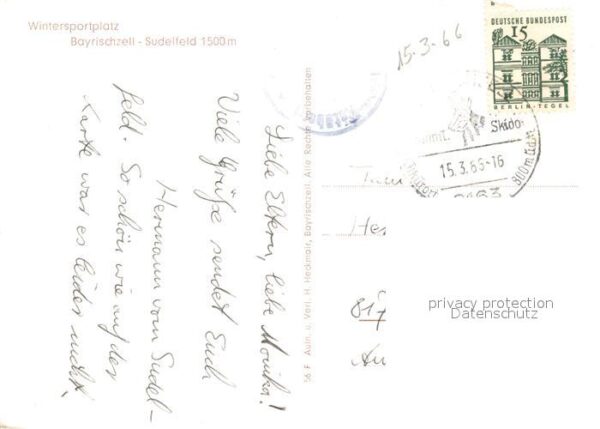 Wintersportplatz
Bayrischzell - Sudelfeld 1500m
15-3-66
DEUTSCHE BUNDESPOST
15
BERLIN-TEGEL
Skido
15.3.66-16
800m ü.d.M
Liebe Eltern, liebe Monika!
Viele Grüße sendet Euch
Hermann vom Sudel-
feld. So schön wie auf der
Karte war es leider nicht,
56 F Aufn. u. Verl. H. Heckmair, Bayrischzell. Alle Rechte vorbehalten
Fam
Her
817
privacy protection
Datenschutz